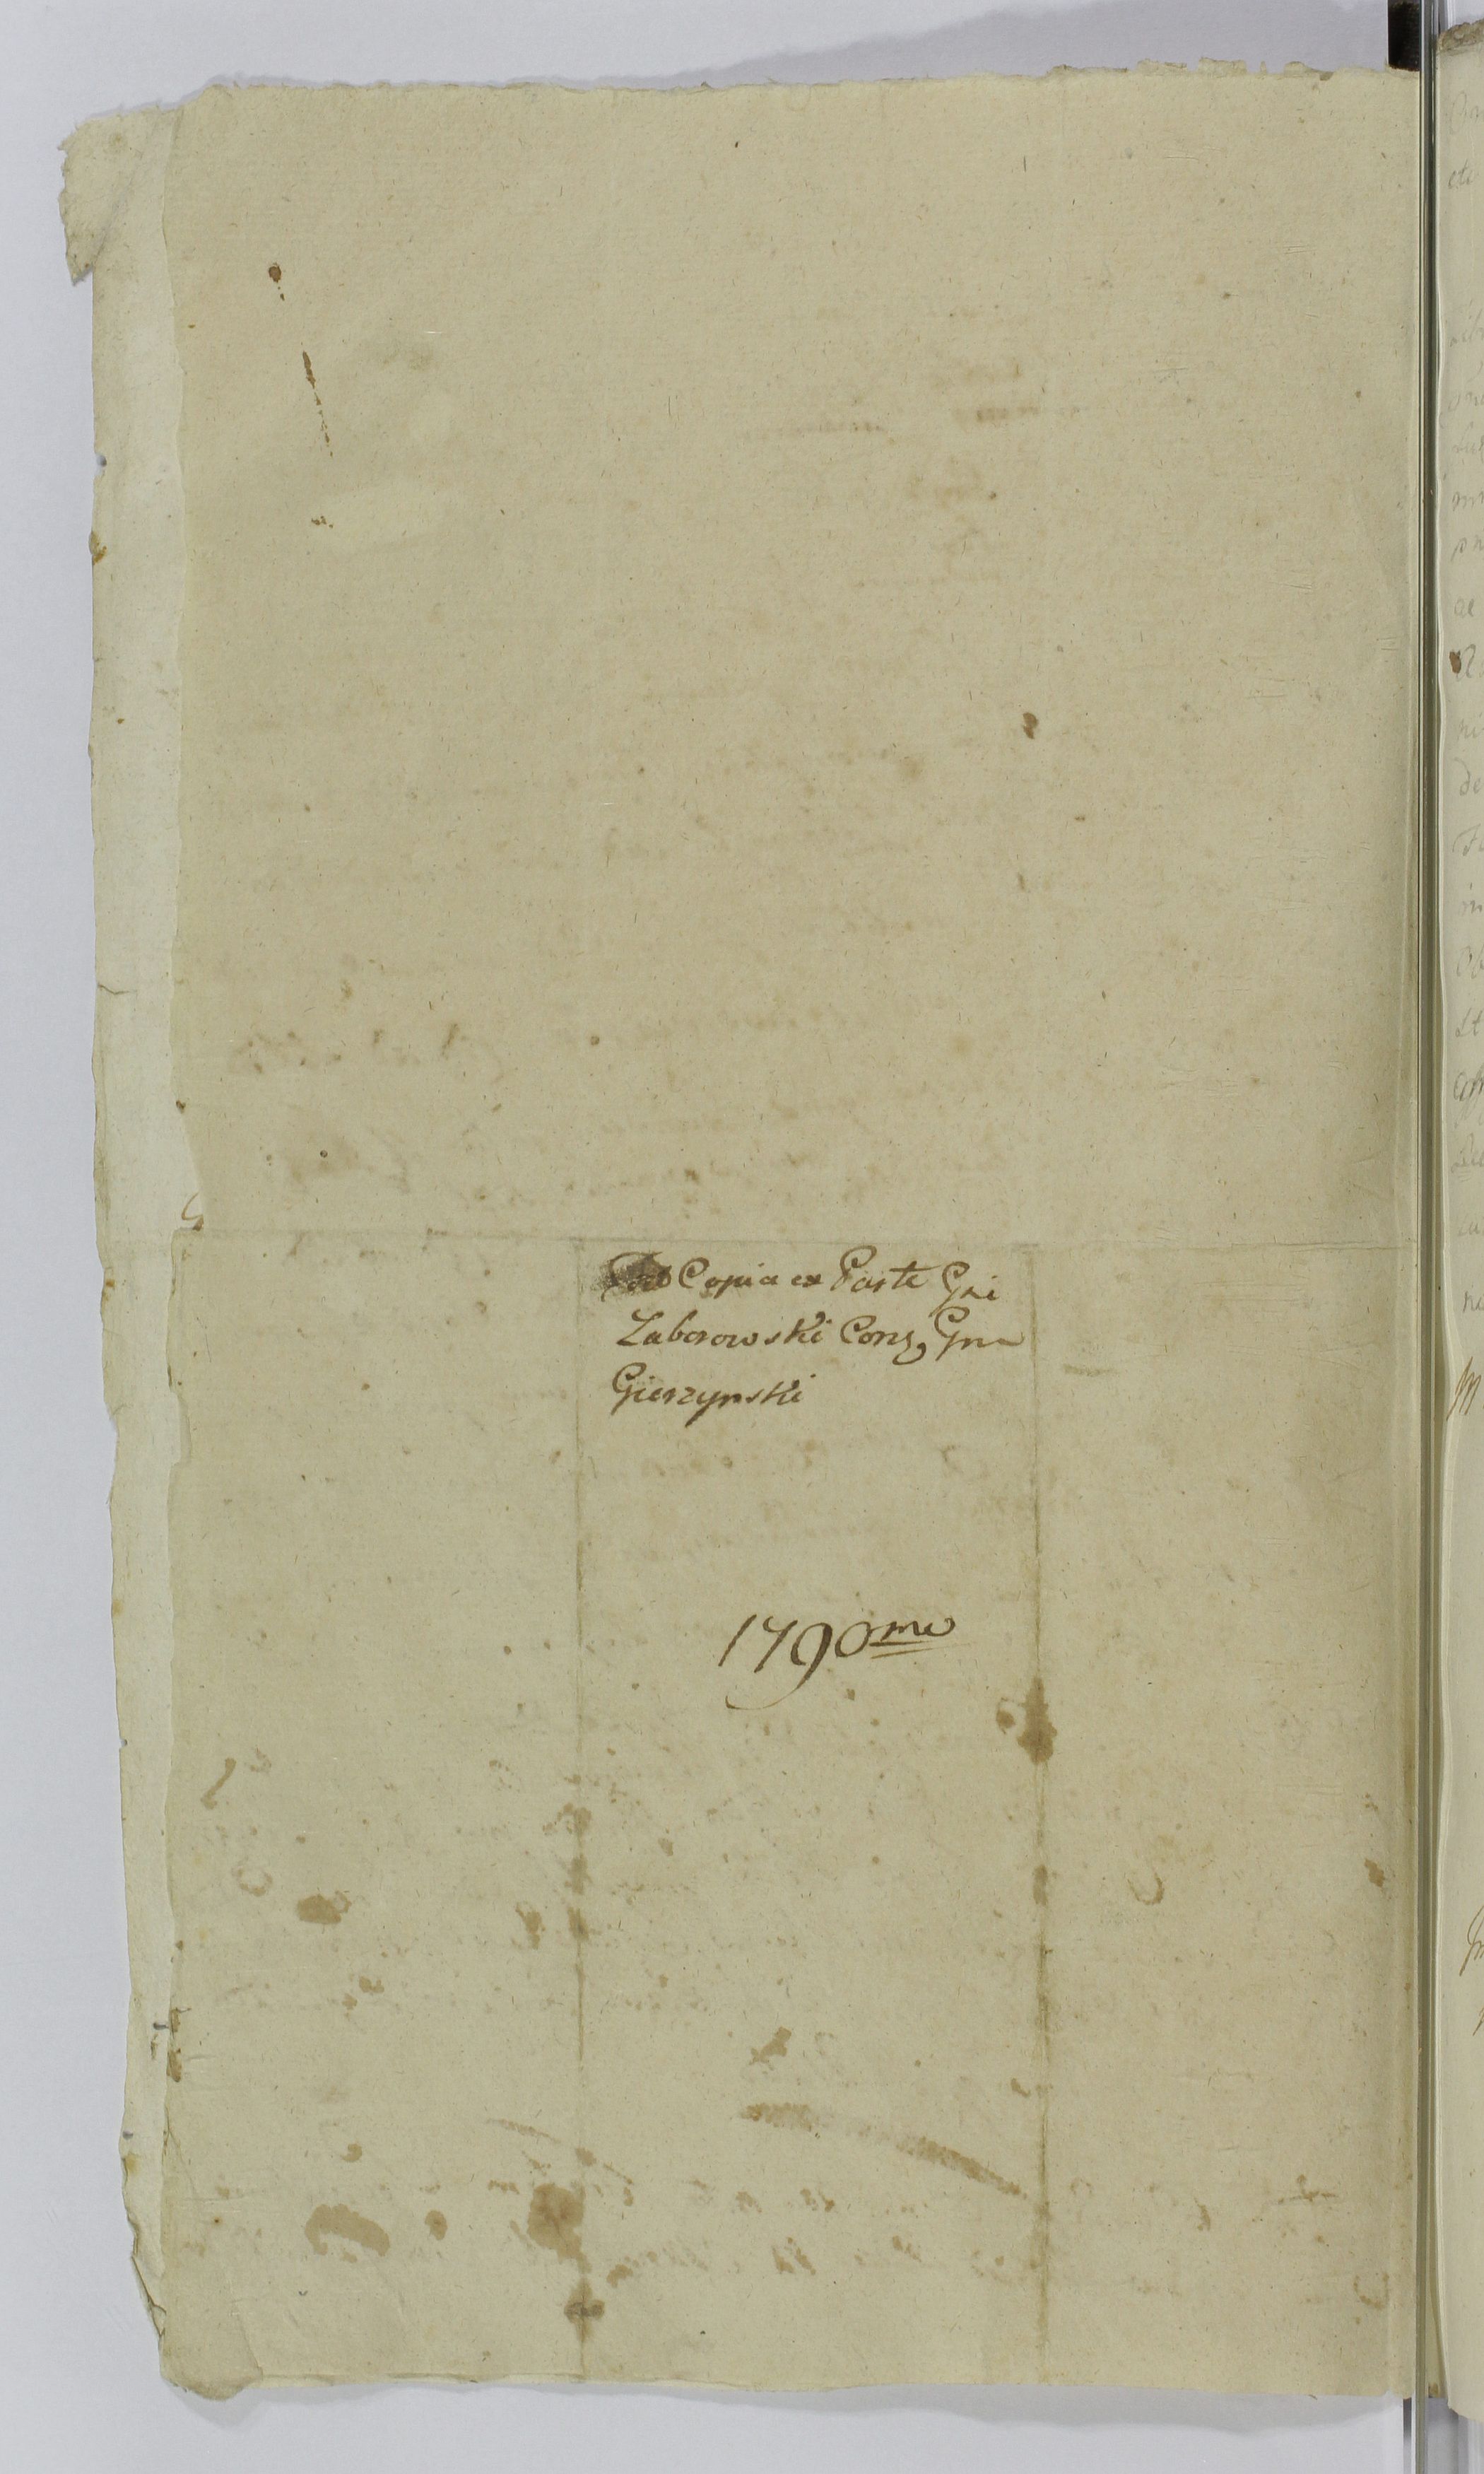 Copia ex Parte Gni
Zaborowski Conz Gnu
Gierzynski
1790mo